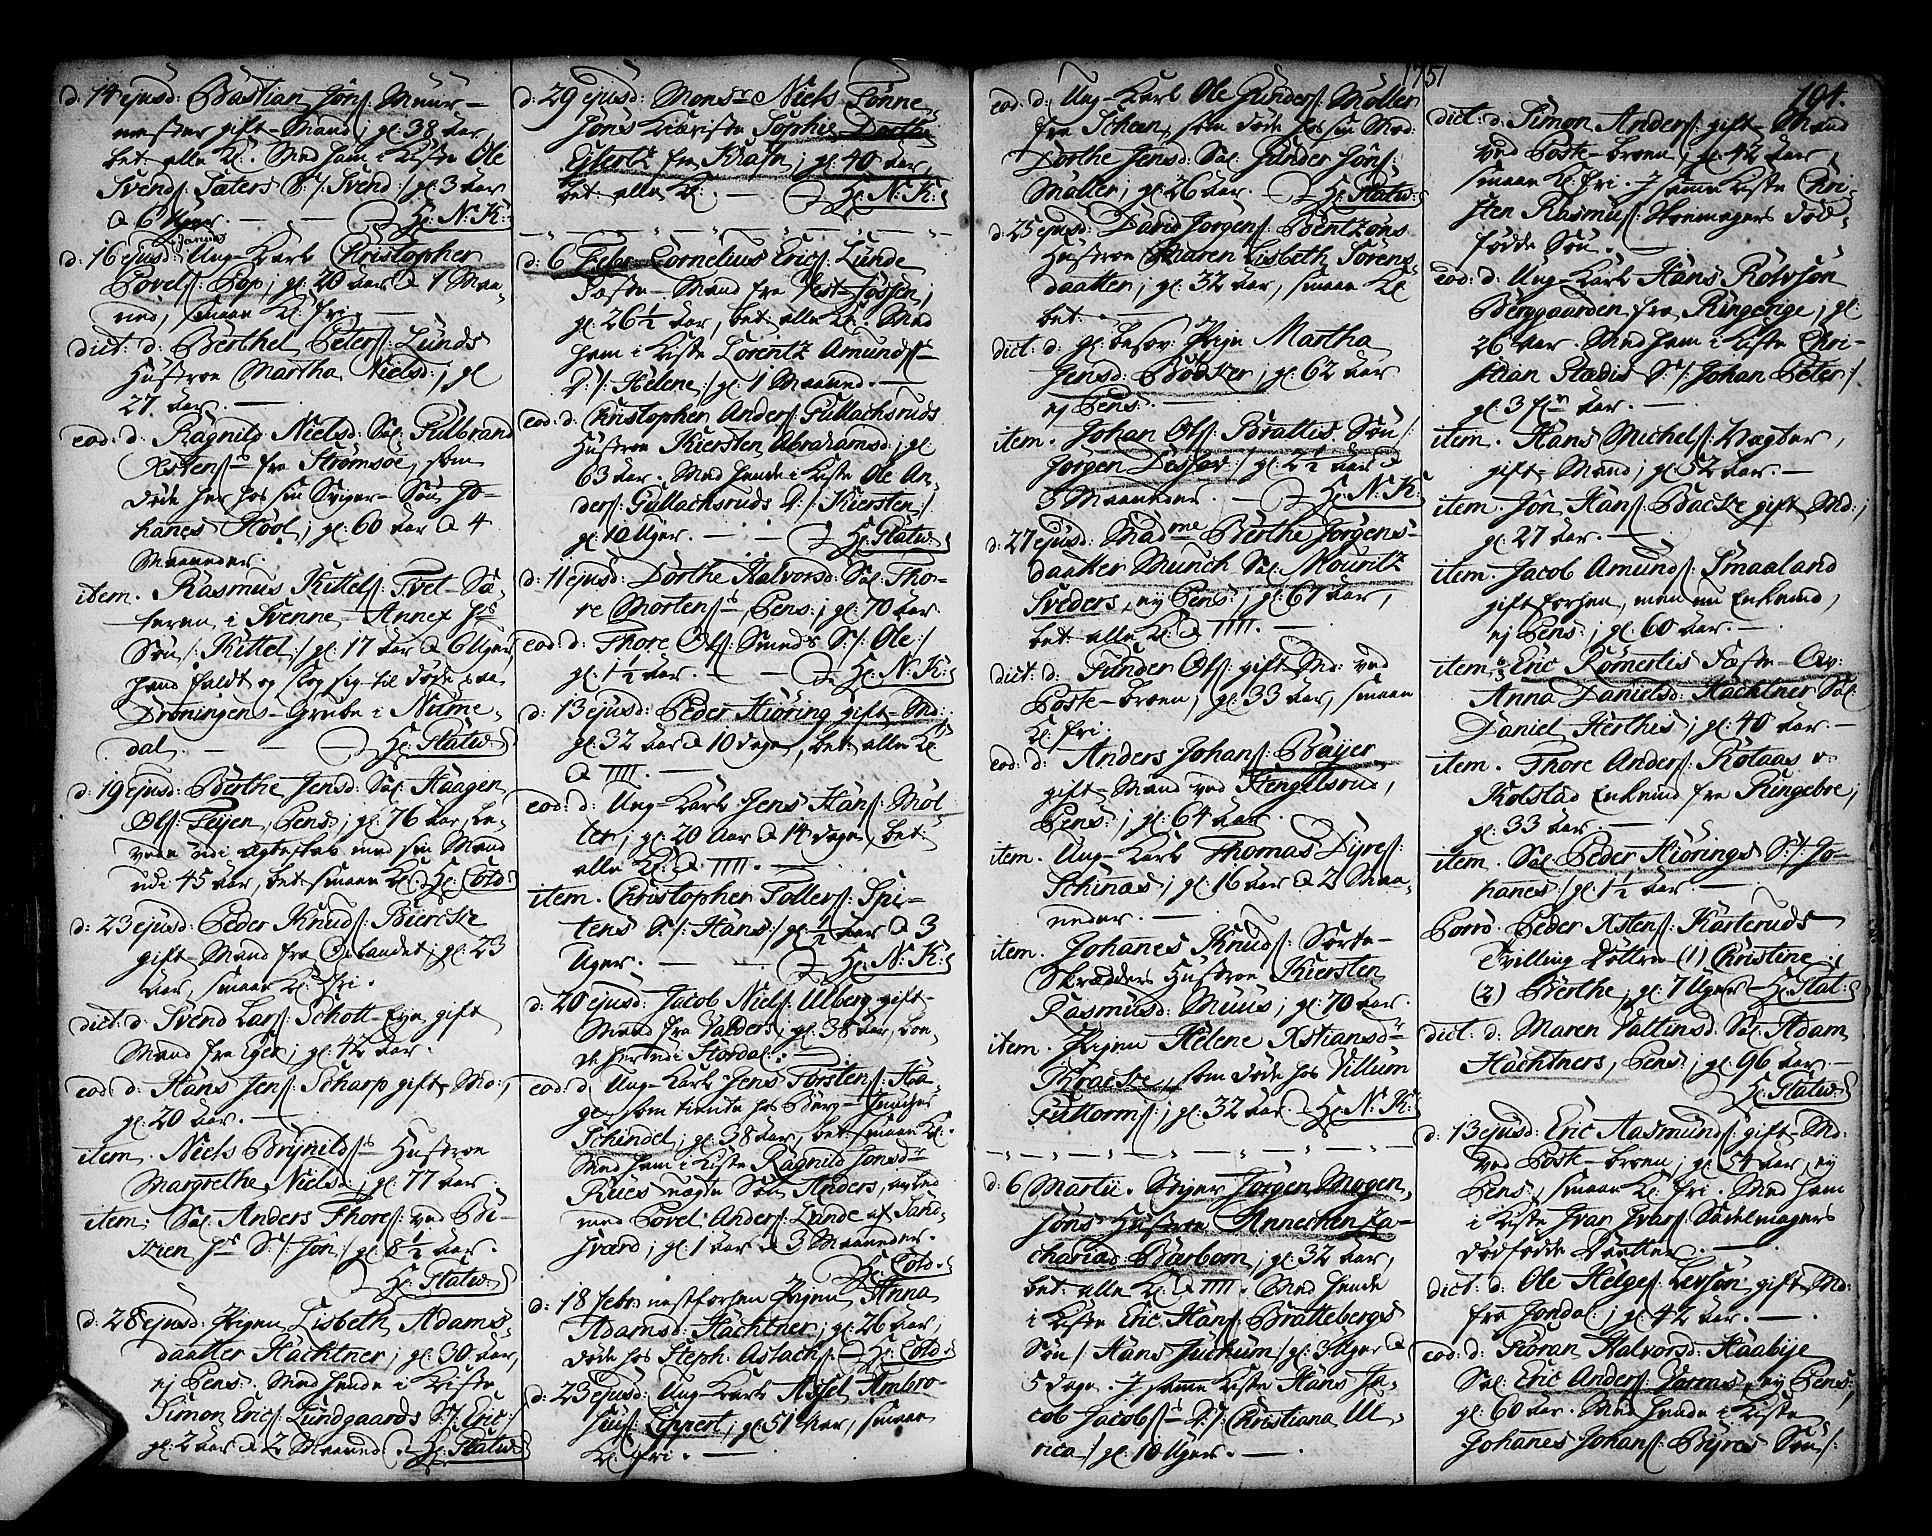 d. 14 ejusd: Bastian Jörs: Muur-
mester gift-Mand; gl: 38 aar,
bet: alle Kl: Med ham i Kiste Ole
Svends: Sæters S:/ Svend:/ gl: 3 aar
& 6 Uger. — — Hr: N: K:
d: 16 ejusd: Januar Ung-Karl Christopher
Povels: Pop; gl: 20 aar & 1 Maa-
ned, smaae Kl: fri. —
dict: d: Berthel Peters: Lunds
Hustroe Martha Nielsd:, gl
27 aar. —
eod: d: Ragnild Nielsd: Sal: Gulbrand
fra Strømsøe, som
døde her hos sin Sviger-Søn Jo-
hanes Hool; gl: 60 aar & 4
Maaneder.
item. Rasmus Kittels: Tvet-Sæ-
teren i Svenne-Annex hs
Søn /: Kittel:/ gl: 17 aar & 6 Uger,
hand faldt og slog sig til døde ved
Droningens-Grube i Nume-
dal. — — Hr: Statw:
d: 19 ejusd: Berthe Jensd: Sal: Haagen
Ols: Teijen, Pens:; gl: 76 aar, le-
vede udi Ægteskab med sin Mand
udi 45 aar, bet: smaae Kl: Hr: Cold:
d: 23 ejusd: Peder Knuds: Biercke
gift-Mand fra Oplandet; gl: 23
aar, smaae Kl: fri.
dict: d: Svend Lars: Schott-Eye gift
Mand fra Eger; gl: 42 aar.
eod: d: Hans Jens: Scharp gift-Md:,
gl: 20 aar. —
item. Niels Brynilds: Hustroe
Margrethe Nielsd:; gl: 77 aar.
item: Sal: Anders Thores: ved Bi-
hs S:/: Jön:/ gl: 8½ aar.
Hr: Statw:
d: 28 ejusd: Pigen Lisbeth Adams-
daatter Hächtner; gl: 30 aar,
ej Pens: Med hende i Kiste
Simon Erics: Lundgaards S:/ Eric:/
gl: 2 aar & 2 Maaned: Hr: Statw:
d: 29 ejusd: Monsr Niels Sønne
Jöns Kiæriste Sophie Dorthe
Eilertz fra Kra; gl: 40 aar,
bet: alle Kl: — Hr: N: K:
d: 6 Febr: Cornelius Erics: Lunde
Mand fra Vest-Fossen;
gl: 26½ aar, bet: alle Kl: Med
ham i Kiste Lorentz Amunds:
D:/: Helene:/ gl: 1 Maaned. —
eod: d: Christopher Anders: Gullachsruds
Hustroe Kiersten Abrahamsd:; gl
63 aar. Med hende i Kiste Ole An-
ders: Gullachsruds D:/: Kiersten:/
gl: 10 Uger. — — Hr: Statw:
d: 11 ejusd: Dorthe Halvorsd: Sal: Tho-
re Mortens:, Pens:; gl: 70 aar.
eod: d: Thore Ols: Smeds S:/ Ole:/
gl: 1½ aar. — — Hr: N: K:
d: 13 ejusd: Peder Hiöring gift-Md:
gl: 32 aar & 10 dage, bet: alle Kl:
& IIII. —
eod: d: Ung-Karl Jens Hans: Möl
ler; gl: 20 aar & 14 dage, bet:
alle Kl: & IIII. —
item. Christopher Tollers: Spi-
tens S:/: Hans:/ gl: ½ aar & 3
Uger. — — Hr: N: K:
d: 20 ejusd: Jacob Niels: Ulberg gift-
Mand fra Valders; gl: 38 aar,
udi Stordal: —
eod: d: Ung-Karl Jens Torstens: Haa-
ge, som tiente hos Berg-
Schindel; gl: 38 aar, bet: smaae Kl:
Med ham i Kiste Ragnild Jonsdr
Rües uægte Søn Anders, avlet
med Povel Anders: Lunde af Sand-
sværd; gl: 1 aar & 3 Maaneder.
Hr: Cold:
d: 18 Febr: nestforhen Pigen Anna
Adamsd: Hächtner; gl: 26 aar,
døde hos Steph: Aslachs: Hr: Cold:
d: 23 ejusd: Ung-Karl Assel Ambro-
sius: Lippert; gl: 51 aar, smaae
Kl: fri. —
1751
eod: d: Ung-Karl Ole Gunders: Möller
fra Scheen, som døde hos sin Mod:
Dorthe Jensd: Sal: Gunder Jöns:
Möller; gl: 26 aar. Hr: Statw:
d: 25 ejusd: David Jörgens: Bentzöns
Hustroe Maren Lisbeth Sörens-
daatter; gl: 32 aar, smaae Kl
bet: —
dict: d: gl: besov: Pige Martha
Jensd: Bödker; gl: 62 aar
ej Pens: —
item. Johan Ols: Brattis Søn/
Jörgen:/ gl: 2½ aar &
3 Maaneder. — Hr: N: K:
d: 27 ejusd: Madme Berthe Jörgens-
daatter Munch Sal: Mouritz
Sveders, ej Pens:; gl: 67 aar,
bet: alle Kl: & IIII. —
dict: d: Gunder Ols: gift Md: ved
Poste-broen; gl: 33 aar, smaae
Kl: fri.
eod: d: Anders Johans: Bayer
gift-Mand ved Hengelsrud,
Pens:; gl: 64 aar.
item. Ung-Karl Thomas Dijres:
Schinas; gl: 16 aar & 2 Maa-
neder. —
item. Johanes Knuds: Sorte-
Skrædders Hustroe Kiersten
Rasmusd: Muus; gl: 70 aar.
item. Pigen Helene Xstiansdr
Kracke, som døde hos Villum
Guttorms:; gl: 32 aar. Hr: N: K:
d: 6 Martii. Stiger Jörgen Mogen-
söns Hustroe Annechen Za-
chariad: Barbom; gl: 32 aar,
bet: alle Kl: & IIII. Med hende
i Kiste Eric Hans: Brattebergs
Søn/ Hans Juchum:/ gl: 3 Uger &
5 dage. I samme Kiste Hans Ja-
cob Jacobs: D:/ Christiana Ul-
rica:/ gl: 10 Uger. —
194.
dict: d: Simon Anders: gift-Mand
ved Poste-broen; gl: 42 aar,
smaae Kl: fri. I samme Kiste Chri-
sten Rasmus: Skomagers død-
fødde Søn. —
eod: d: Ung-Karl Hans Rolvsön
Berggaarden fra Ringerige; gl:
26 aar. Med ham i Kiste Chri-
stian Stædis S:/: Johan Peter:/
gl: 3 fr aar. —
item. Hans Michels: Vagter,
gift-Mand; gl: 52 aar. —
item. Jon Hans: Backe gift Md:;
gl: 27 aar. —
item. Jacob Amunds: Smaaland
gift forhen, men nu Enkemd;
ej Pens:; gl: 60 aar. —
item. Eric Römertis
Anna Danielsd: Hächtner Sal:
Daniel Herthis; gl: 40 aar. —
item. Thore Anders: Rotaas v:
Kolstad Enkemd fra Ringeboe;
gl: 33 aar. —
item. Sal: Peder Hiörings S:/: Jo-
hanes:/ gl: 1½ aar —
Porro. Peder Xstens: Karteruds
Tvilling Døttre (1) Christine:;
(2) Berthe; gl: 7 Uger. Hr: Stat:
dict: d: Maren Vattinsd: Sal: Adam
Hächtners, Pens:; gl: 96 aar. —
Hr: Statw:
d: 13 ejusd: Eric Aasmunds: gift-Md:
ved Poste-broen; gl: 54 aar, ej
Pens:, smaae Kl: fri. Med ham
i Kiste Ivar Ivars: Sadelmagers
dødfødde Daatter. —
dict: d: Ole Helges: Leersön gift Md:
fra Jondal; gl: 42 aar. —
eod: d: Göran Halvorsd: Haabije
Sal: Eric Anders: Varms, ej Pens:,
gl: 60 aar. Med hende i Kiste
Johanes Johans: Byres Søn/: